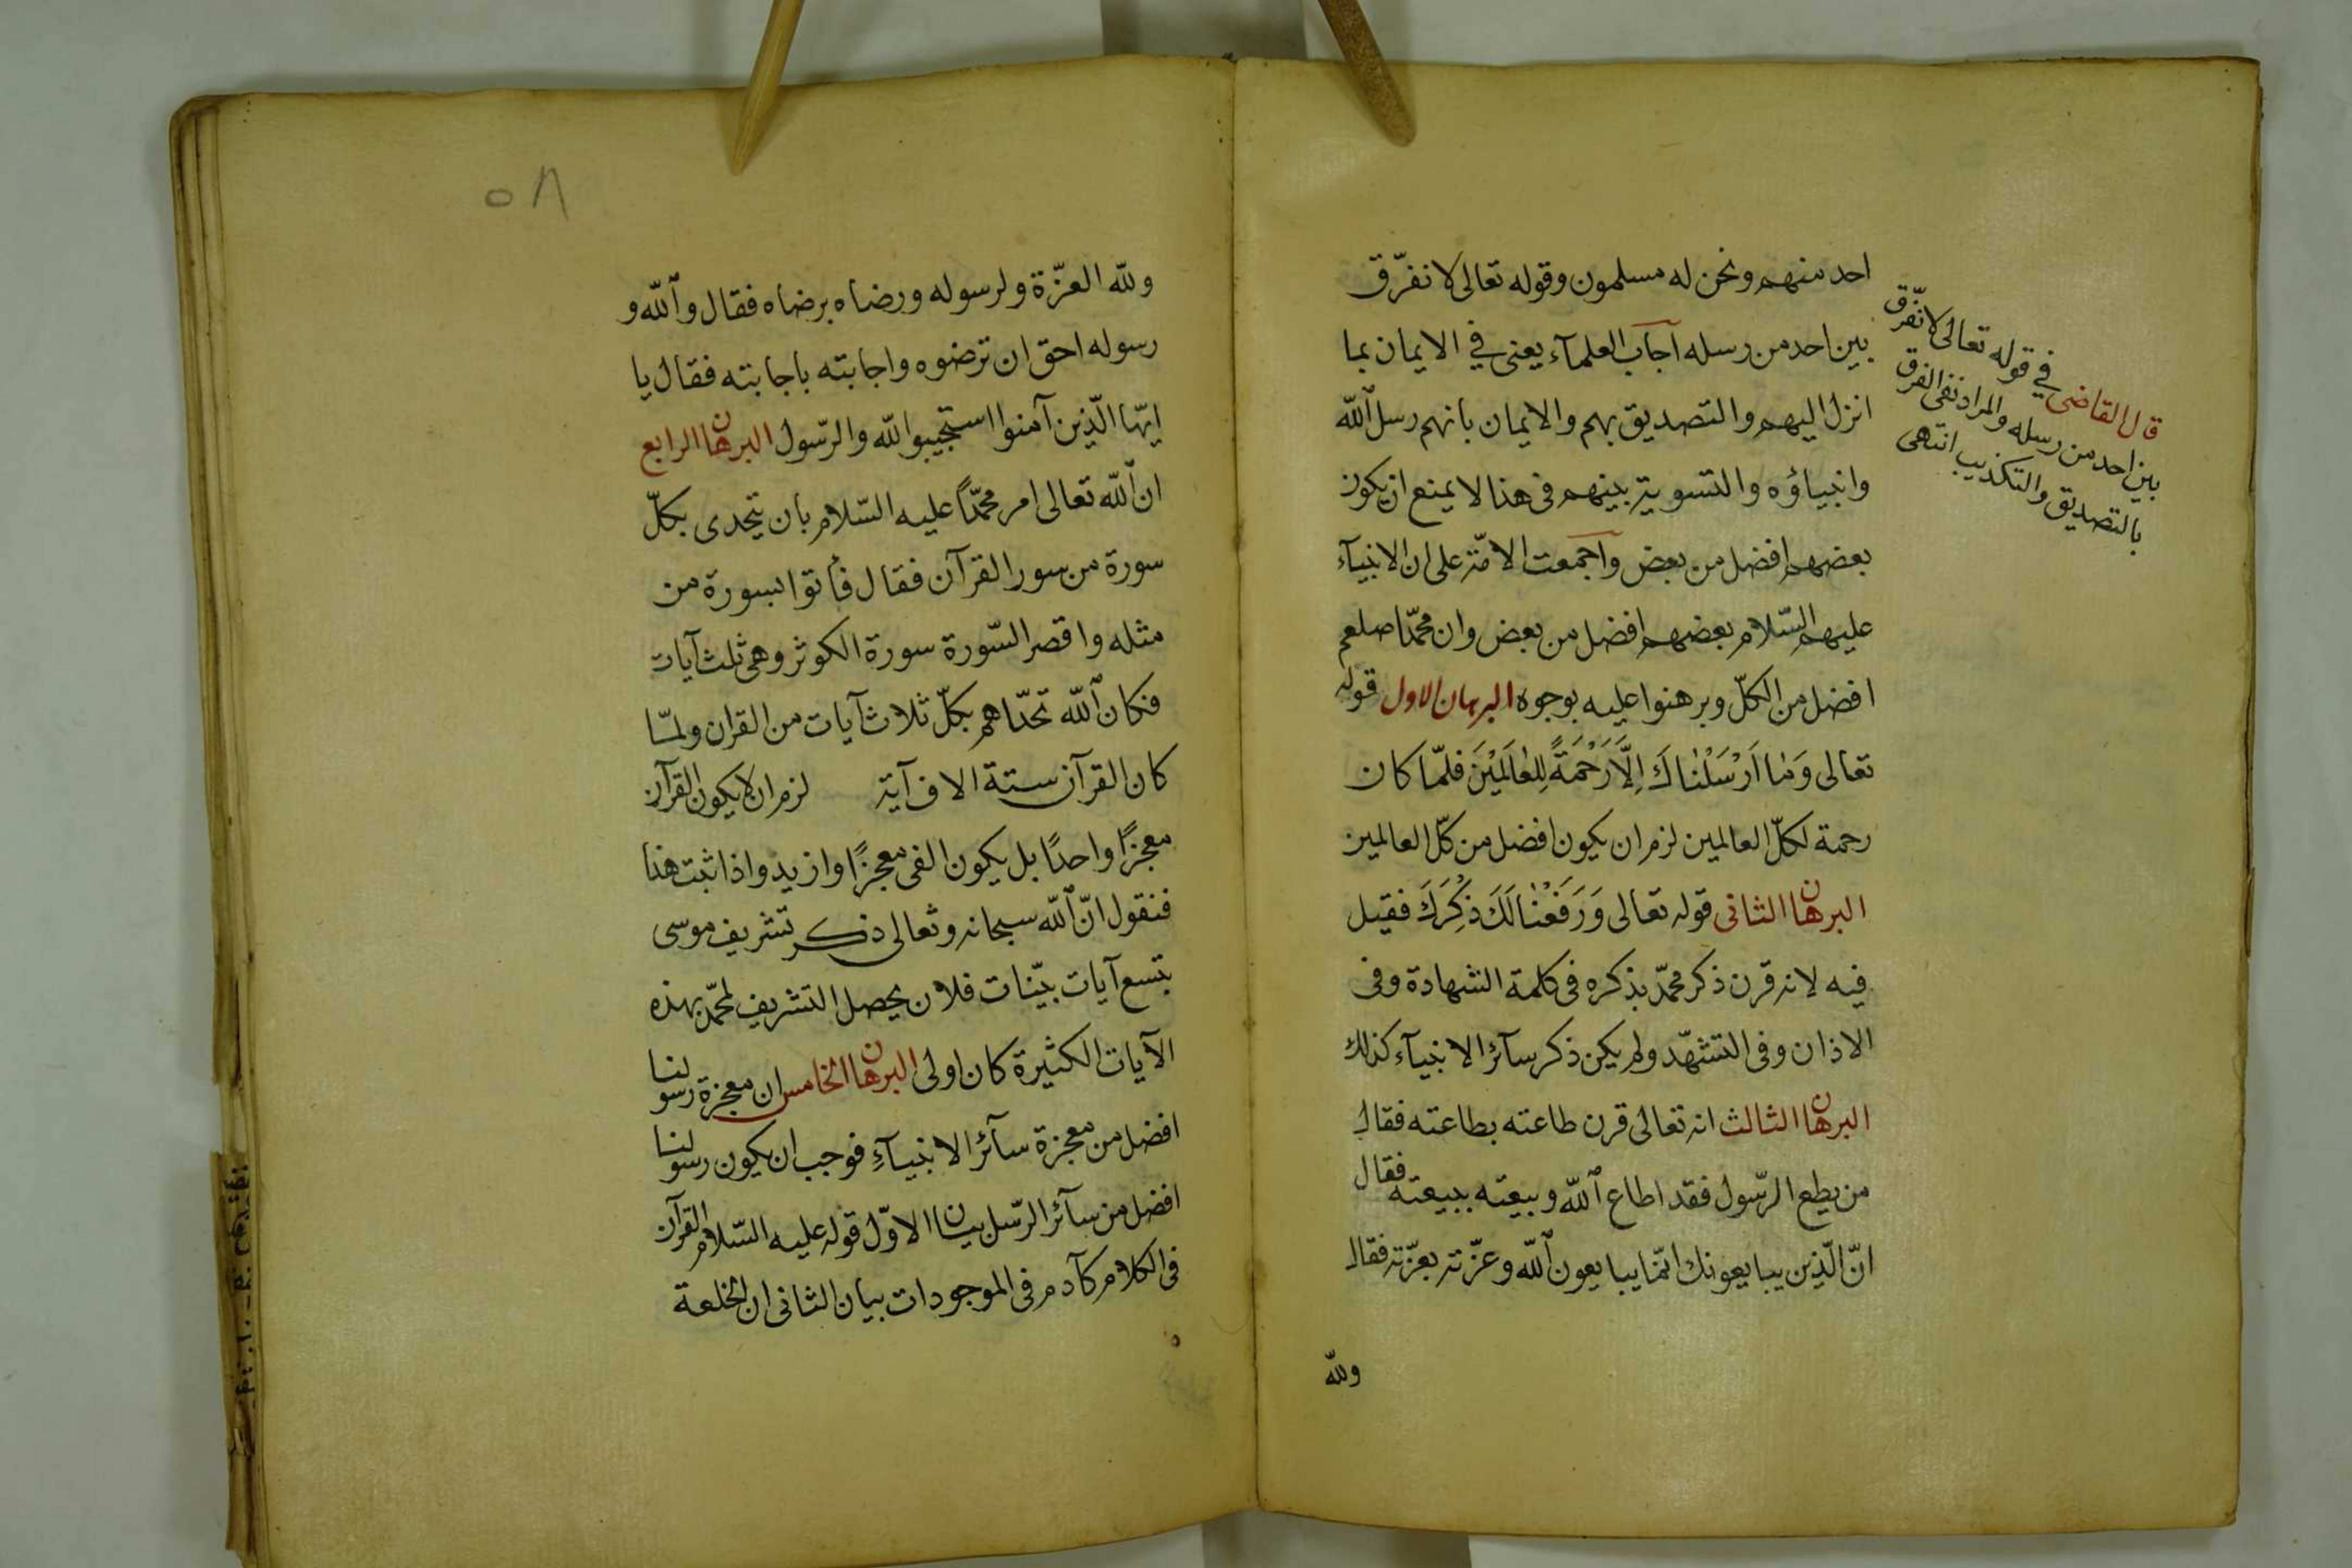 احد منهم ونحن له مسلمون وقوله تعالى لا نفرّق
بين احد من رسله اجاب العلمآء يعنى في الايمان بما
انزل اليهم والتصديق بهم والايمان بانهم رسل الله
وانبياؤه والتسوية بينهم فى هذا لا يمنع ان يكون
بعضهم افضل من بعض واجمعت الامّة على ان الانبيآء
عليهم السّلام بعضهم افضل من بعض وان محمّدا صلعم
افضل من الكلّ وبرهنوا عليه بوجوه البرهان الاول قوله
تعالى وَمَا اَرْسَلْنَاكَ اِلَّا رَحْمَةً لِلعَالَمِيْنَ فلمّا كان
رحمة لكلّ العالمين لزم ان يكون افضل من كلّ العالمين
البرهان الثانى قوله تعالى وَرَفَعْنَا لَكَ ذِكْرَكَ فقيل
فيه لانه قرن ذكر محمّد بذكره فى كلمة الشهادة وفى
الاذان وفى التشهّد ولم يكن ذكر سآئر الانبيآء كذلك
البرهان الثالث انه تعالى قرن طاعته بطاعته فقال
من يطع الرّسول فقد اطاع الله وبيعته ببيعته فقال
انّ الّذين يبايعونك انّما يبايعون الله وعزّته بعزّته فقال
ولله
قال القاضى في قوله تعالى لا نفّرق
بين احد من رسله والمراد نفى الفرق
بالتصديق والتكذيب انتهى
٥٨
ولله العزّة ولرسوله ورضاه برضاه فقال والله و
رسوله احق ان ترضوه واجابته باجابته فقال يا
ايّها الّذين آمنوا استجيبوا لله والرّسول البرهان الرابع
ان الله تعالى امر محمّداً عليه السّلام بان يتحدى بكلّ
سورة من سور القرآن فقال فأتوا بسورة من
مثله واقصر السّورة سورة الكوثر وهى ثلث آيات
فكان الله تحدّاهم بكلّ ثلاث آيات من القران ولمّا
كان القرآن ستة الاف آية لزم ان لا يكون القرآن
معجزًا واحدًا بل يكون الفى معجزًا وازيد واذا ثبت هذا
فنقول انّ الله سبحانه وتعالى ذكر تشريف موسى
بتسع آيات بيّنات فلان يحصل التشريف لمحمّد بهذه
الآيات الكثيرة كان اولى البرهان الخامس ان معجزة رسولنا
افضل من معجزة سآئر الانبيآءِ فوجب ان يكون رسولنا
افضل من سآئر الرّسل بيان الاوّل قوله عليه السّلام القرآن
فى الكلام كآدم فى الموجودات بيان الثانى ان الخلعة